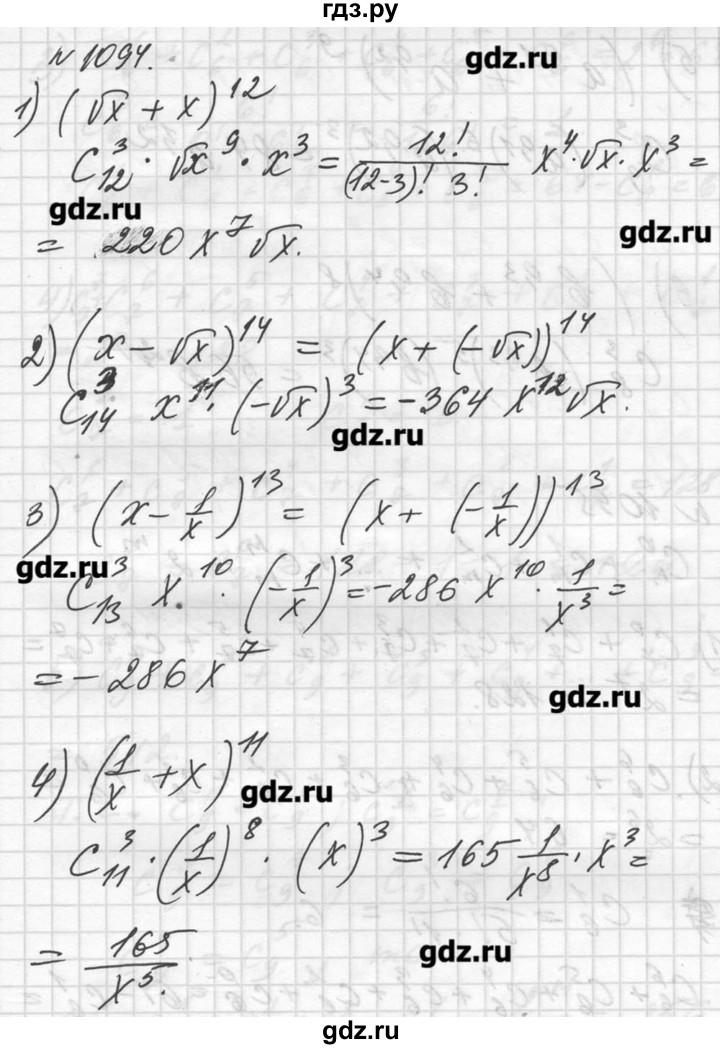 гдз.ру
№ 1094.
gdz.ru
1) (√x + x)^12
C_12^3 · √x^9 · x^3 = 12!/((12-3)! 3!) x^4·√x·x^3 =
gdz.ru
gdz.ru
= 220 x^7 √x.
2) (x - √x)^14 = (x + (-√x))^14
C_14^3 x^11 · (-√x)^3 = -364 x^12 √x.
gdz.ru
3) (x - 1/x)^13 = (x + (-1/x))^13
gdz.ru
C_13^3 x^10 · (-1/x)^3 = -286 x^10 · 1/x^3 =
= -286 x^7
gdz.ru
4) (1/x + x)^11
gdz.ru
C_11^3 · (1/x)^8 · (x)^3 = 165 1/x^8 · x^3 =
= 165/x^5.
gdz.ru
gdz.ru